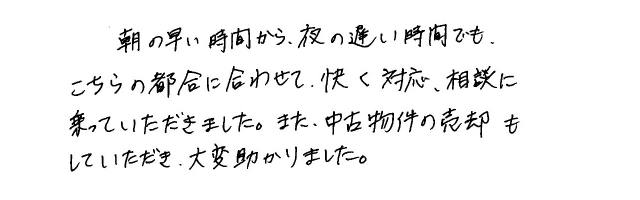 朝の早い時間から、夜の遅い時間でも、
こちらの都合に合わせて、快く対応、相談に
乗っていただきました。また、中古物件の売却も
していただき、大変助かりました。